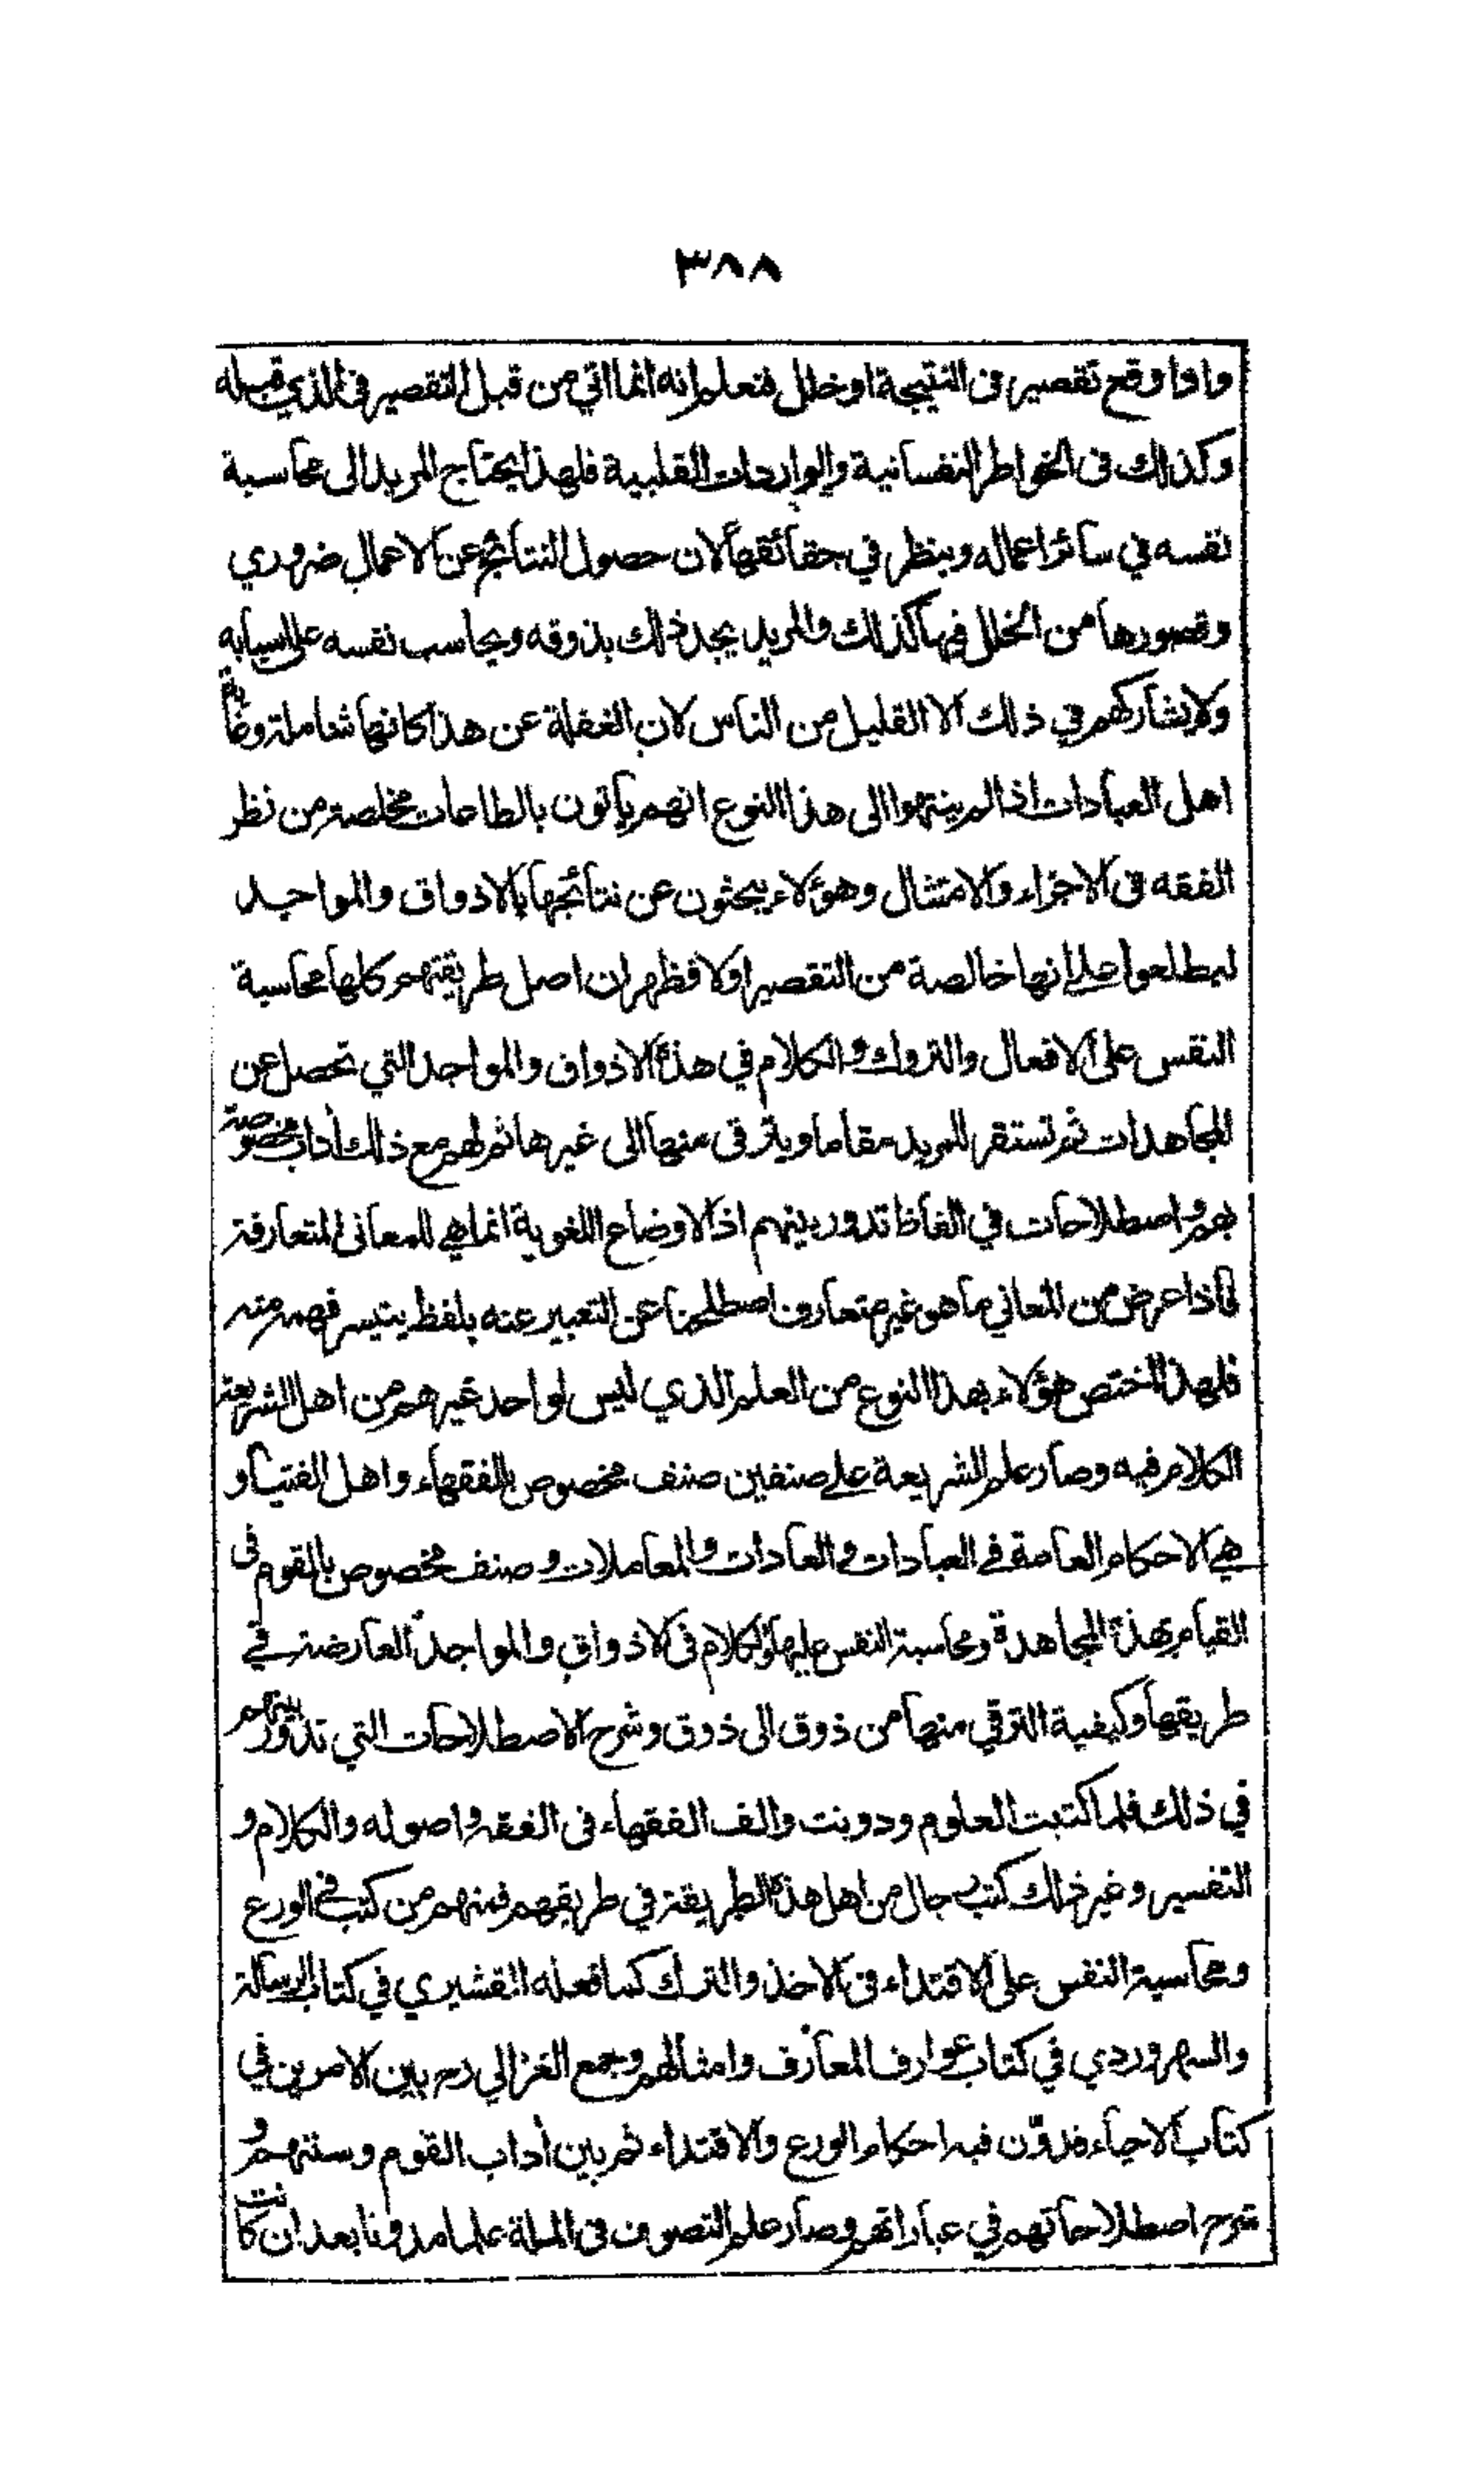 ٣٨٨
واذا وقع تقصير فى النتيجة او خلل فتعلم انه انما اتي من قبل التقصير فى الذي قبله
وكذلك فى الخواطر النفسانية والواردات القلبية فلهذا يحتاج المريد الى محاسبة
نفسه في سائر اعماله وينظر في حقائقها لان حصول النتائج عن الاعمال ضروري
وقصورها من الخلل فيها كذلك والمريد يجد ذلك بذوقه ويحاسب نفسه على اسبابه
ولا يشاركهم في ذلك الا القليل من الناس لان الغفلة عن هذا كانها شاملة وغاية
اهل العبادات اذا لم ينتهوا الى هذا النوع انهم ياتون بالطاعات مخلصة من نظر
الفقه فى الاجزاء والامتثال وهؤلاء يبحثون عن نتائجها بالاذواق والمواجيد
ليطلعوا على انها خالصة من التقصير اولا فظهر ان اصل طريقتهم كلها محاسبة
النفس على الافعال والتروك والكلام في هذه الاذواق والمواجد التي تحصل عن
المجاهدات ثم تستقر للمريد مقاما ويترقى منها الى غيرها ثم لهم مع ذلك أداب مخصوصة
بهم واصطلاحات في الفاظ تدور بينهم اذ الاوضاع اللغوية انما هي للمعانى المتعارفة
فاذا عرض من المعاني ما هو غير متعارف اصطلحنا عن التعبير عنه بلفظ يتيسر فهمه منه
فلهذا اختص هؤلاء بهذا النوع من العلم الذي ليس لواحد غيرهم من اهل الشريعة
الكلام فيه وصار علم الشريعة على صنفين صنف مخصوص بالفقهاء واهل الفتيا و
هي الاحكام العامة في العبادات والعادات والمعاملات وصنف مخصوص بالقوم فى
القيام بهذه المجاهدة ومحاسبة النفس عليها والكلام فى الاذواق والمواجد العارضة في
طريقها وكيفية الترقي منها من ذوق الى ذوق وشرح الاصطلاحات التي تدور بينهم
في ذلك فلما كتبت العلوم ودونت والف الفقهاء فى الفقه واصوله والكلام و
التفسير وغير ذلك كتب رجال من اهل هذه الطريقة في طريقهم فمنهم من كتب في الورع
ومحاسبة النفس على الاقتداء فى الاخذ والترك كما فعله القشيري في كتاب الرسالة
والسهروردي في كتاب عوارف المعارف وامثالهم وجمع الغزالي رح بين الامرين في
كتاب الاحياء فدوّن فيه احكام الورع والاقتداء ثم بين أداب القوم وسنتهم و
شرح اصطلاحاتهم في عباراتهم وصار علم التصوف فى الملة علما مدونا بعد ان كانت